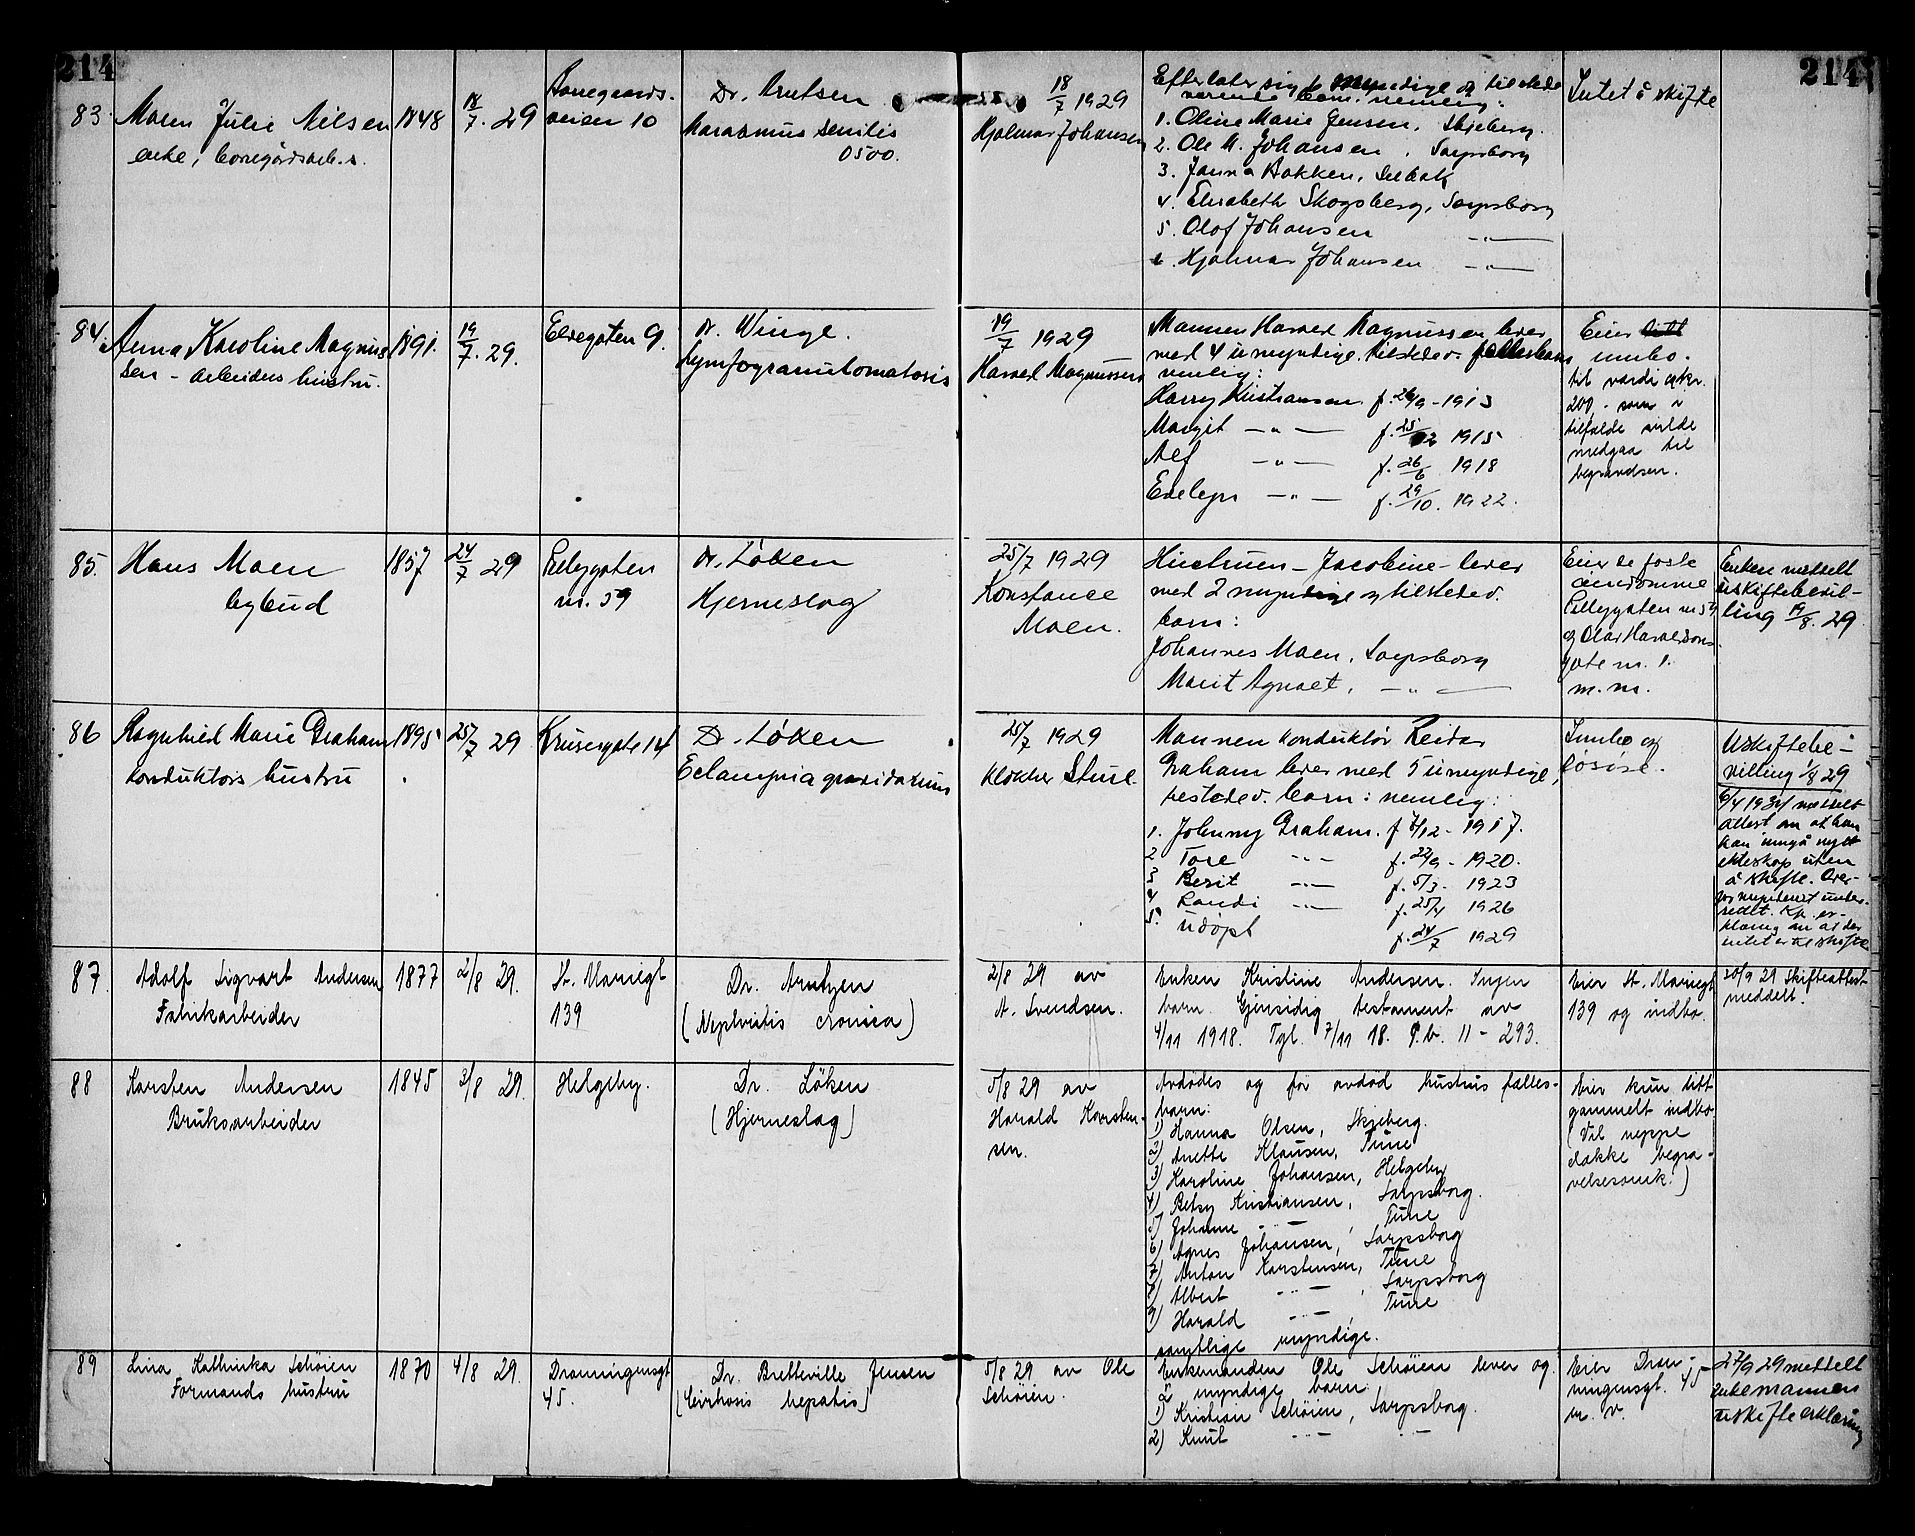 214
214
83. Maren Julie Nilsen
enke,
1848
18/7. 29
Borregaards-
veien 10
Dr. Arntsen
Marasmus senilis
0500.
18/7 1929
Hjalmar Johansen
Efterlater sig 6 myndige og tilstede
værende barn. nemlig:
1. Oline Marie Jensen, Skjeberg.
2. Ole M. Johansen, Sarpsborg
3. Janna Bakken, Selbak
4. Elisabeth Skogsberg, Sarpsborg
5. Olof Johansen —"—
6. Hjalmar Johansen —"—
Intet å skifte
84. Anna Karoline Magnus
sen - arbeiders hustru.
1891.
19/7. 29.
Elvegaten 9.
dr. Winge.
Lymfogranulomatosis
19/7 1929
Harald Magnussen
Mannen Harald Magnussen lever
med 4 umyndige tilstedev. fellesbarn
nemlig:
Harry Kristiansen f. 26/9 - 1913
Margit —"— f. 25/12 1915
Alf —"— f. 26/6 1918
Evelyn —"— f. 29/10. 1922.
Eier litt
innbo.
til værdi ca. kr.
200,- som i
tilfælde vilde
medgaa til
begravelsen.
85. Hans Moen
bybud
1857
24/7 29
Pellygaten
nr. 59
dr. Løken
Hjerneslag
25/7 1929
Konstance
Moen.
Hustruen - Jacobine - lever
med 2 myndige og tilstedev.
barn:
Johannes Moen, Sarpsborg
Marit Agnalt, —"—
Eier de faste
eiendomme
Pellygaten nr 59
og Olav Haraldsons
gate nr. 1.
m.m.
Enken meddelt
uskiftebevil-
ling 19/8. 29.
86 Ragnhild Marie Graham
konduktørs hustru
1895
25/7 29
Krusesgate 14
Dr. Løken
Eclampsia gravidarum
25/7 1929
klokker Stene
Mannen konduktør Reidar
Graham lever med 5 umyndige,
tilstedev. barn: nemlig:
1. Johnny Graham. f 7/12 - 1917.
2 Tore —"— f. 22/9 - 1920.
3 Berit —"— f. 5/3 - 1923
4 Randi —"— f. 25/4 1926
5. udøpt f. 24/7 1929
Innbo og
løsøre.
Uskiftebe-
villing 1/8 29
6/4 1934 meddelt
attest om at han
kan inngå nytt
ekteskap uten
å skifte. Over-
formynderiet under-
rettet.
klæring om at der
intet er til skifte
87. Adolf Sigvart Andersen
Fabrikarbeider
1877
2/8 29.
St. Mariegt
139
Dr. Arntzen
(Nephritis cronica)
2/8 29 av
A. Svendsen.
Enken Kristine Andersen. Ingen
barn. Gjensidig testament av
4/11 1918. Tgl. 7/11 18. P.b. 11 - 293.
Eier St. Mariegt
139 og indbo.
20/9 29 Skifteattest
meddelt.
88 Karsten Andersen
Bruksarbeider
1845
3/8 29.
Helgeby.
Dr. Løken
(Hjerneslag)
5/8 29 av
Harald Karsten-
sen.
Avdødes og før avdød hustrus fælles-
barn:
1) Hanna Olsen, Skjeberg.
2) Anette Klausen, Tune
3) Karoline Johansen, Helgeby
4) Betsy Kristiansen, Sarpsborg.
5) Johanne —"—, Tune
6) Agnes Johansen, Sarpsborg
7) Anton Karstensen, Tune
8) Albert —"—, Sarpsborg
9) Harald —"— Tune
samtlige myndige.
Eier kun litt
gammelt indbo
(Vil neppe
dække begra-
velsesomk.)
89 Lina Kathinka Schøien
Formands hustru
1870
4/8 29.
Dronningensgt
45.
Dr. Bretteville Jensen
(Cirrhosis hepatis)
5/8 29 av Ole
Schøien.
Enkemanden Ole Schøien lever og
2 myndige barn:
1) Kristian Schøien, Sarpsborg.
2) Knut —"— —"—
Eier Dron-
ningensgt. 45
m. v.
27/9 29 meddelt
enkemannen
uskifteerklæring